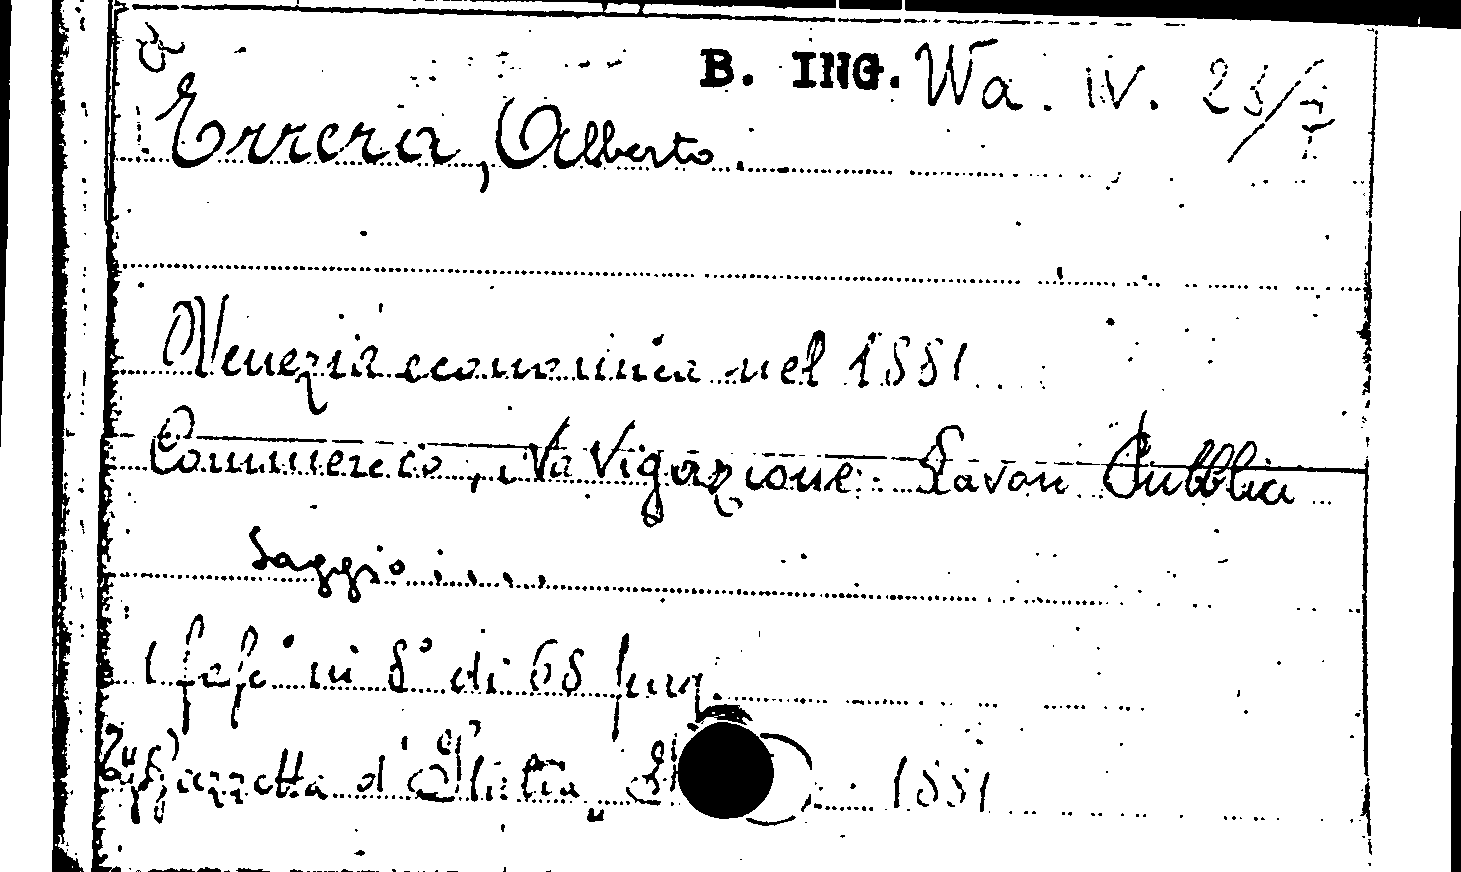 B. ING. Wa. IV. 25/7
Errera, Alberto.
Venezia economica nel 1881
Commercio, Navigazione. Lavori Pubblici
Saggio ....
1 fasc° in 8° di 68 pag.
Gazzetta d'Italia 1881